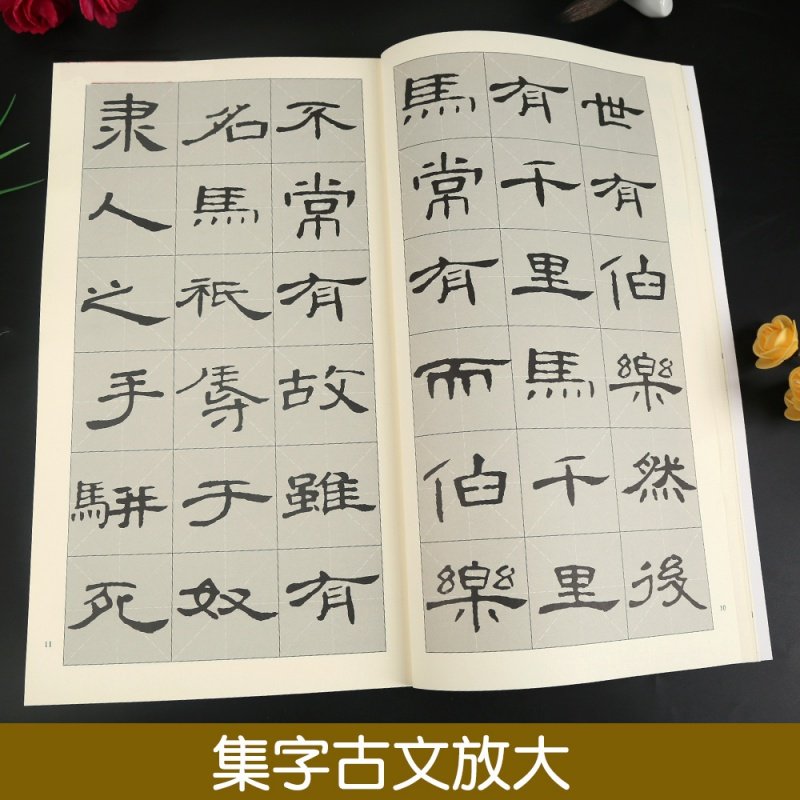 世有伯樂然後
有千里馬千里
馬常有而伯樂
10
不常有故雖有
名馬祇辱于奴
隶人之手駢死
11
集字古文放大